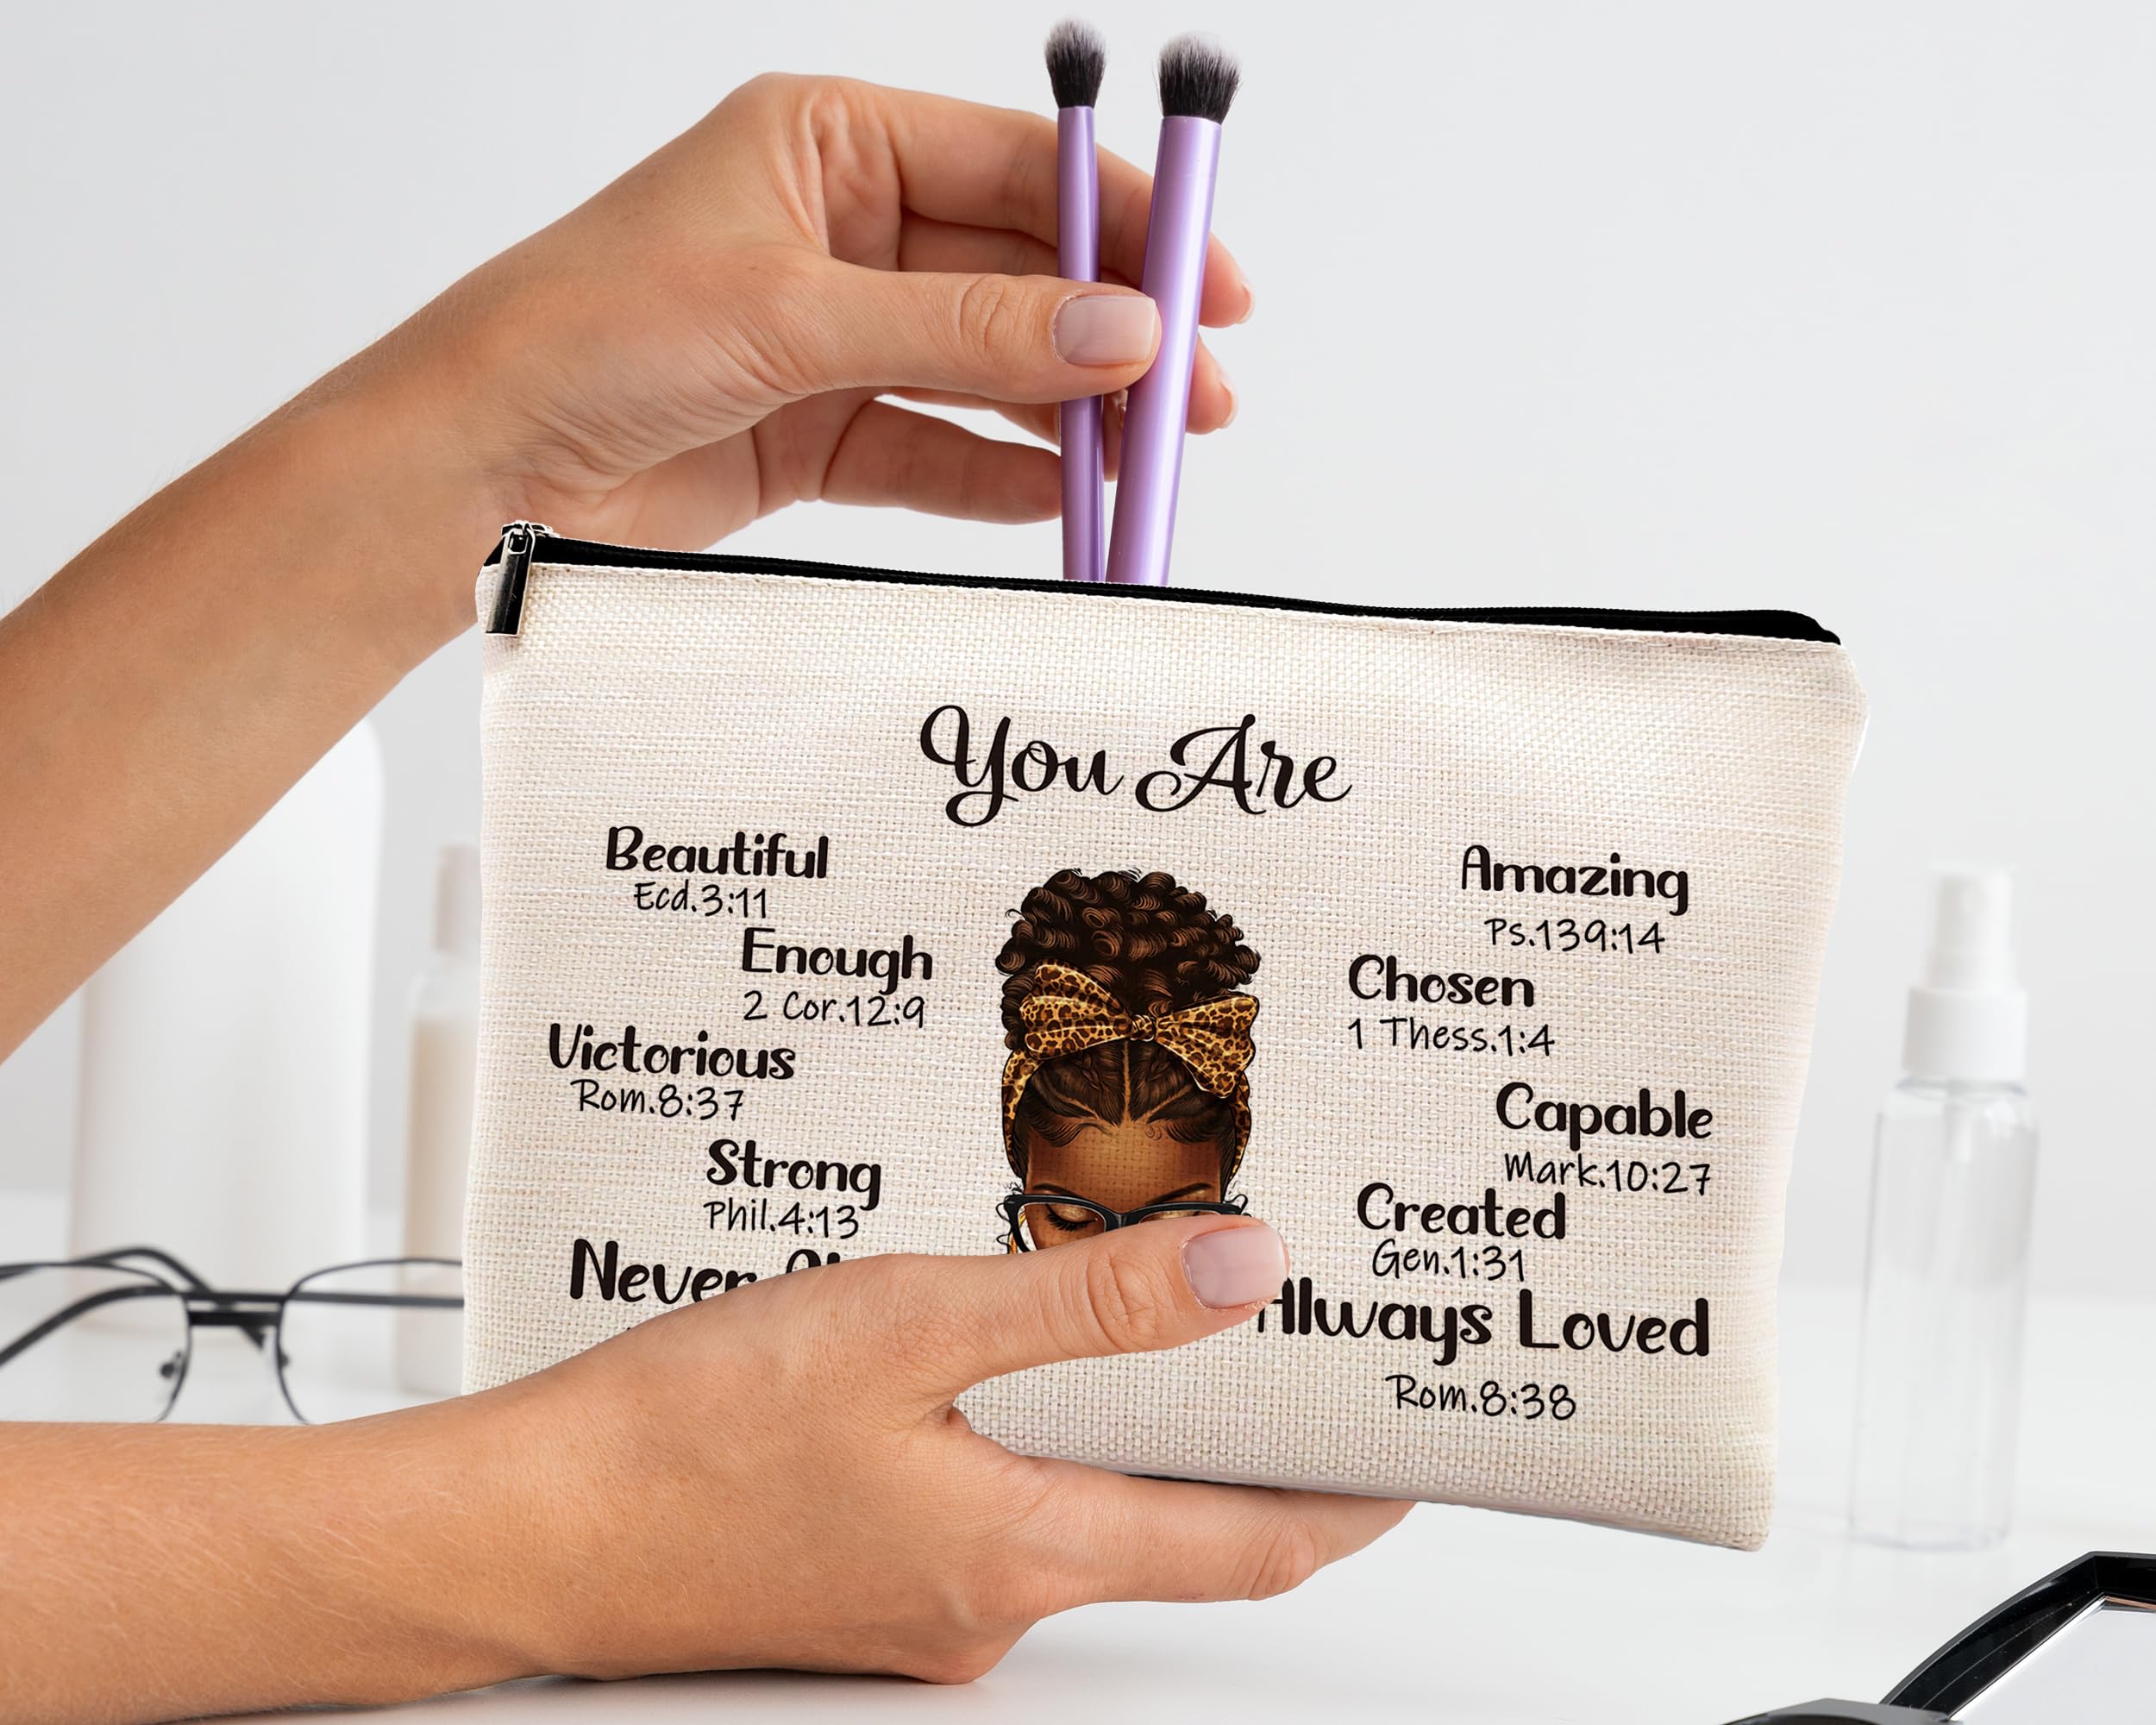 You Are
Beautiful
Ecd.3:11
Enough
2 Cor.12:9
Victorious
Rom.8:37
Strong
Phil.4:13
Never
Amazing
Ps.139:14
Chosen
1 Thess.1:4
Capable
Mark.10:27
Created
Gen.1:31
Always Loved
Rom.8:38